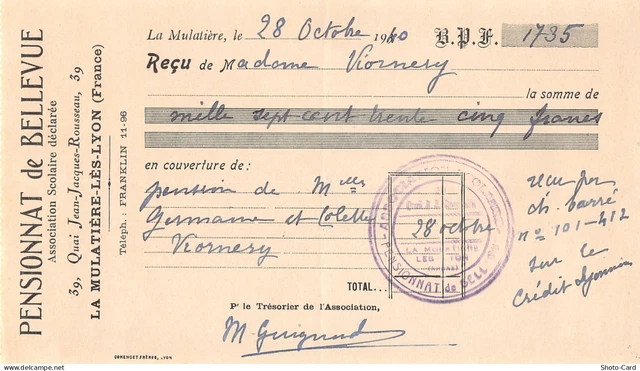 PENSIONNAT de BELLEVUE
Association Scolaire déclarée
39, Quai Jean-Jacques-Rousseau, 39
LA MULATIÈRE-LÈS-LYON (France)
Téléph. : FRANKLIN 11-96
La Mulatière, le 28 Octobre 1940 B.P.F. 1735
Reçu de Madame Viornery
la somme de
mille sept cent trente cinq francs
en couverture de :
pension de Melles
Germaine et Colette
Viornery
28 octbre
LA MULATIERE
LES LYON
PENSIONNAT de BELLEVUE
TOTAL...
reçu par
ch. barré
n° 101-412
sur le
Crédit Lyonnais
Pr le Trésorier de l'Association,
M Guignard
GRMENGET FRÈRES, LYON
www.delcampe.net
Photo-Card